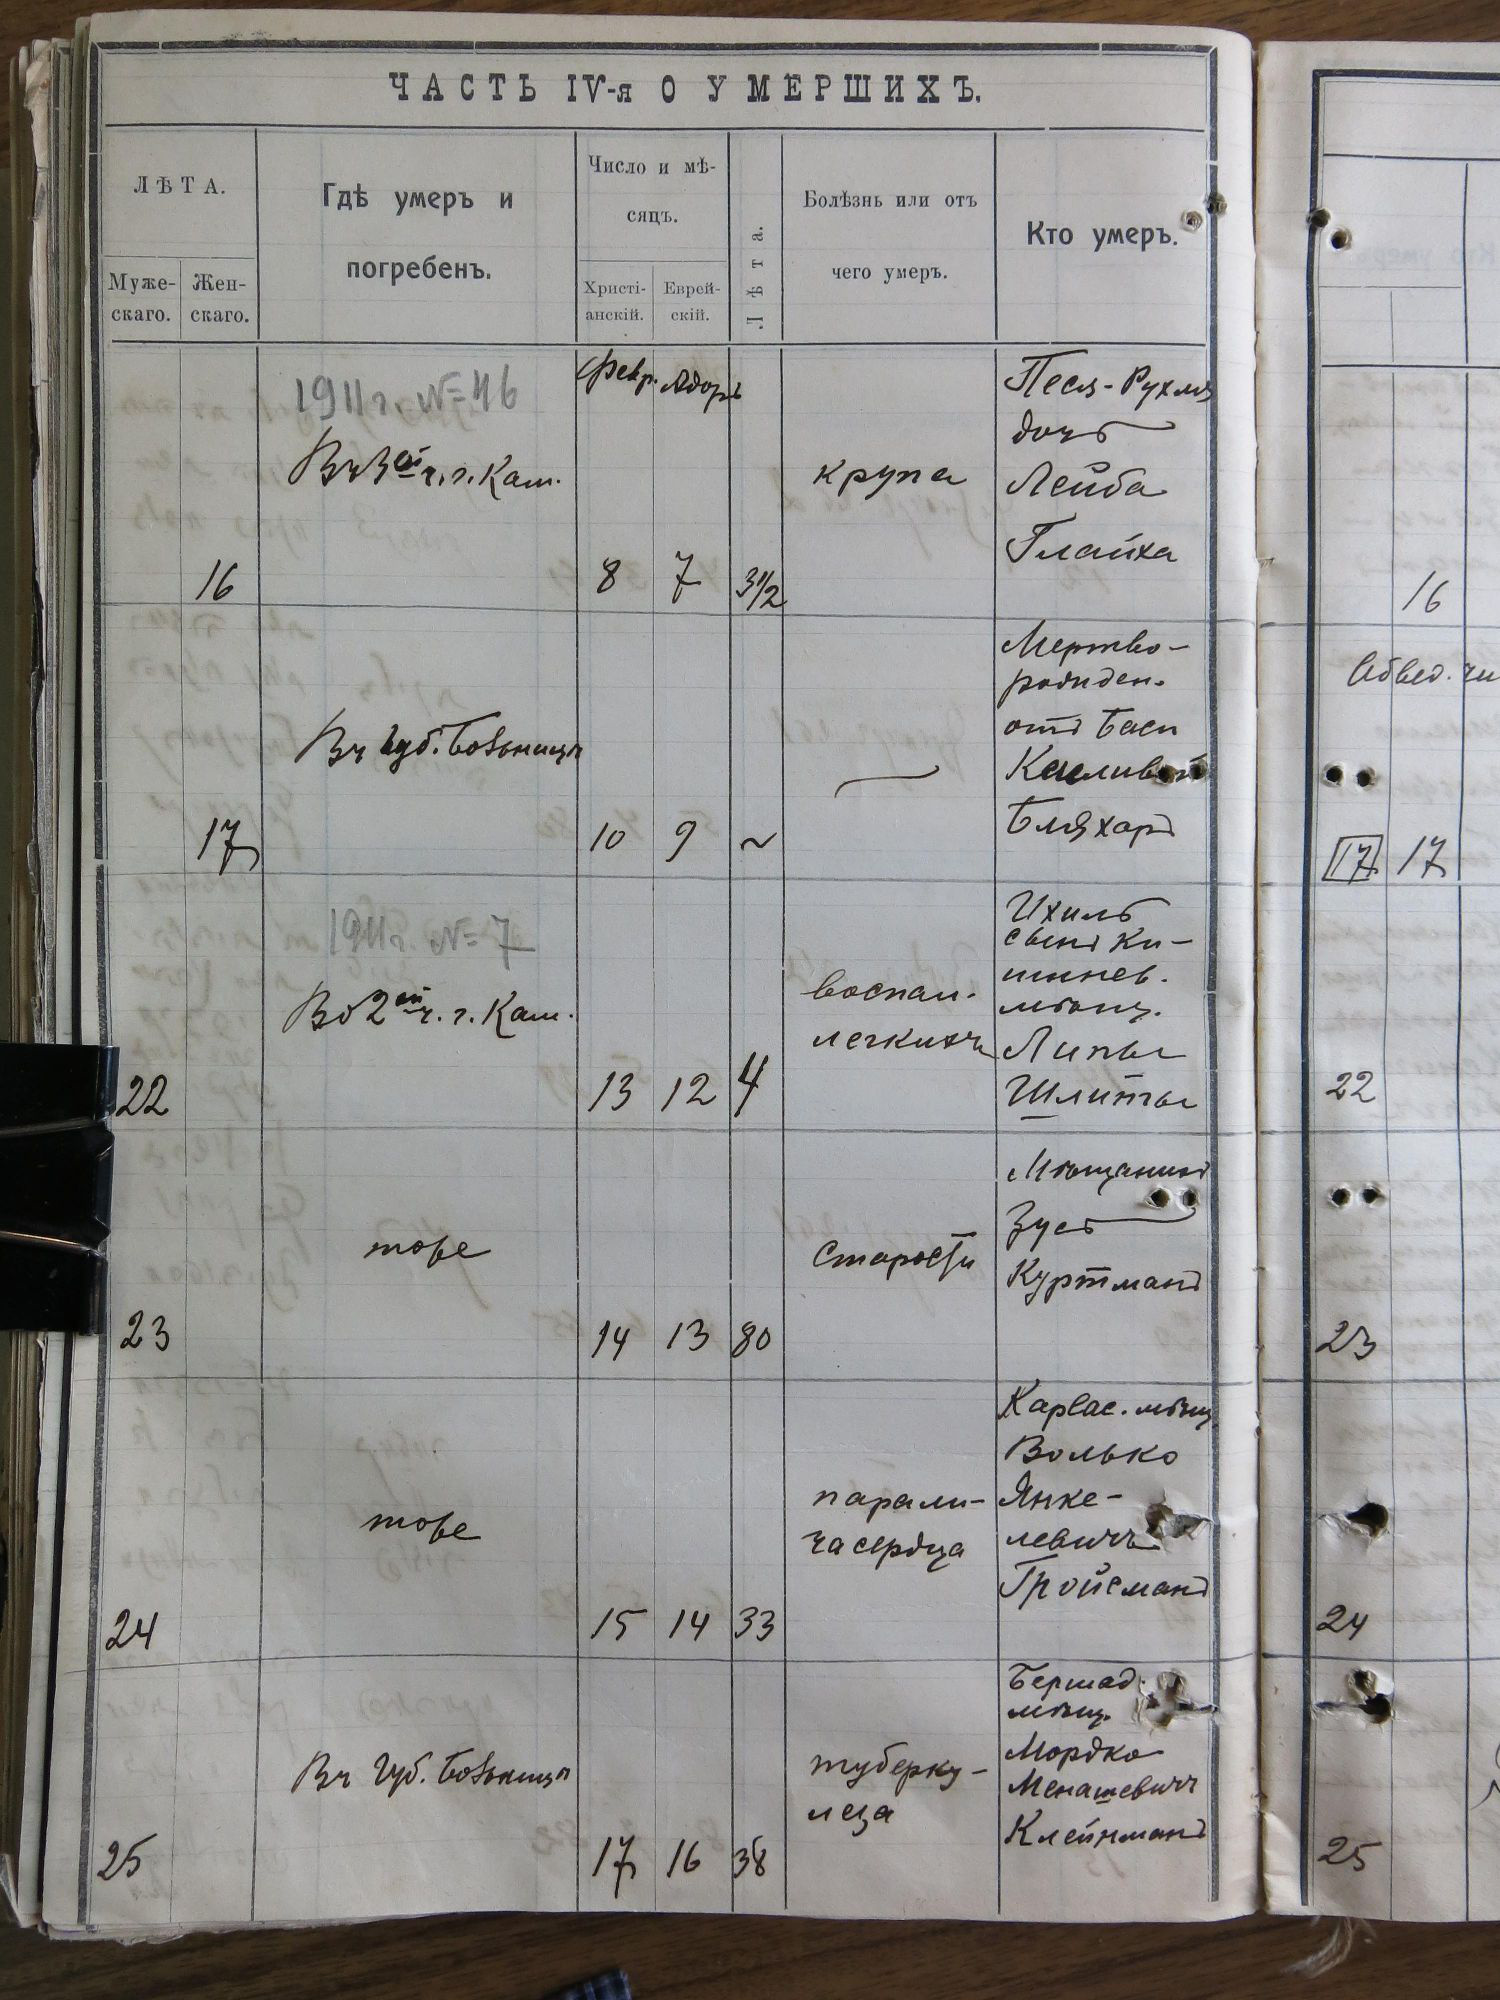 ЧАСТЬ IV-я О УМЕРШИХЪ.
ЛѢТА.
Муже-
скаго.
Жен-
скаго.
Гдѣ умеръ и
погребенъ.
Число и мѣ-
сяцъ.
Христі-
анскій.
Еврей-
скій.
Лѣта.
Болѣзнь или отъ
чего умеръ.
Кто умеръ.
Февр. Адоръ
16
1911 г. №
Въ 3ей ч. г. Кам.
8
7
3 1/2
крупа
Песя-Рухля
дочь
Лейба
Глайха
17
Въ Губ. Больницѣ
10
9
~
Мертво-
рожден.
отъ Баси
Бляхаръ
22
1911 г. № 7
Во 2ой ч. г. Кам.
13
12
4
воспал.
легкихъ
Ихиль
сынъ Ки-
шинев.
мѣщ.
Липы
23
тоже
14
13
80
старости
Мѣщанинъ
Зусь
Куртманъ
24
тоже
15
14
33
парали-
ча сердца
мѣщ.
Волько
Янке-
левичъ
Гройсманъ
25
Въ Губ. Больницѣ
17
16
38
туберку-
леза
Бершад.
мѣщ.
Мордко
Менашевичъ
Клейнманъ
16
17 17
22
23
24
25